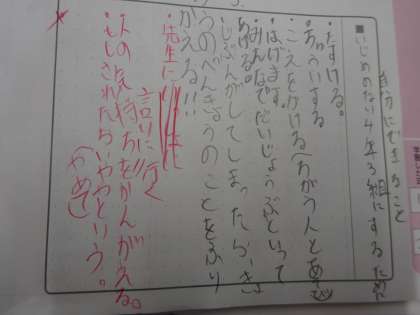 自分にできること
■いじめのない4年3組にするために
・たすける。
・ちゅういする
・こえをかける(ちがう人とあそぶ)
・はげます。
・みんなでだいじょうぶといって
あげる。
・じぶんがしてしまったら、き
ょうのべんきょうのことをふり
かえる!!
・先生に言いに行く
・人の気持ちをかんがえる。
・もしされたらいややという。
(やめて)